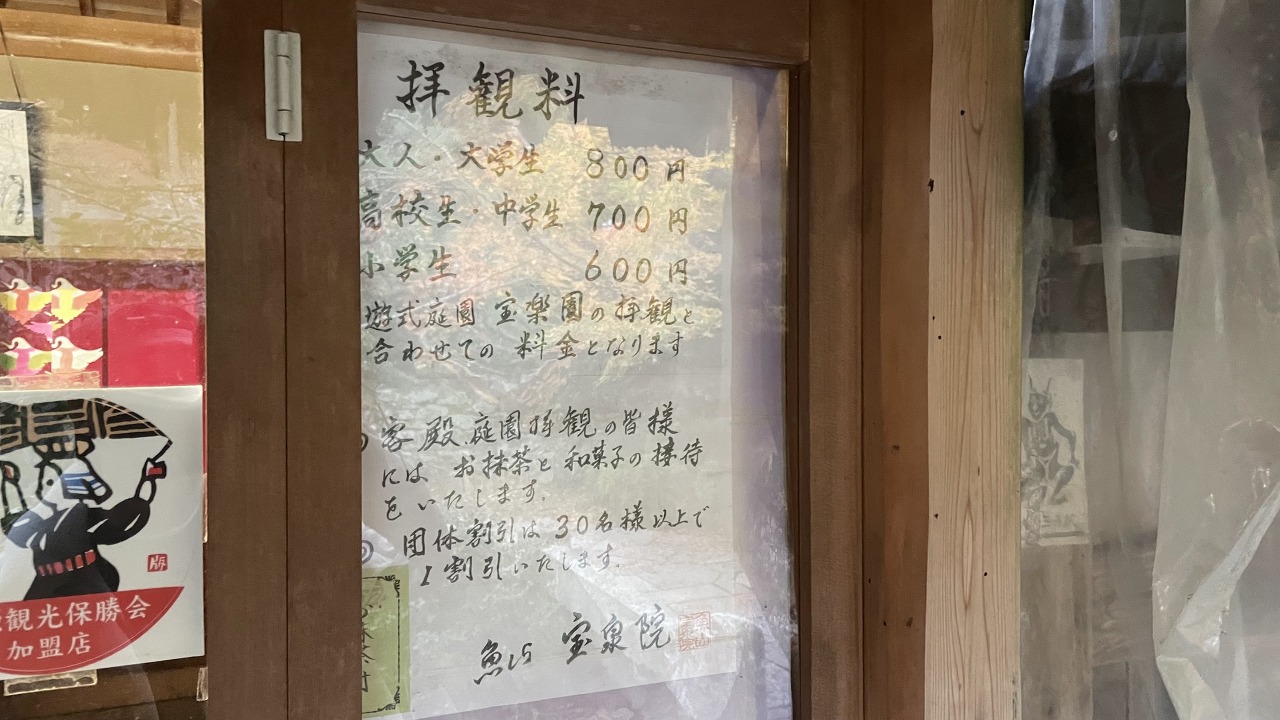 拝観料
大人・大学生 800円
高校生・中学生 700円
小学生 600円
遊式庭園 宝楽園の拝観と
合わせての 料金となります
客殿、庭園拝観の皆様
には お抹茶と和菓子の接待
をいたします。
団体割引は30名様以上で
1割引いたします。
魚山 宝泉院
観光保勝会
加盟店
版